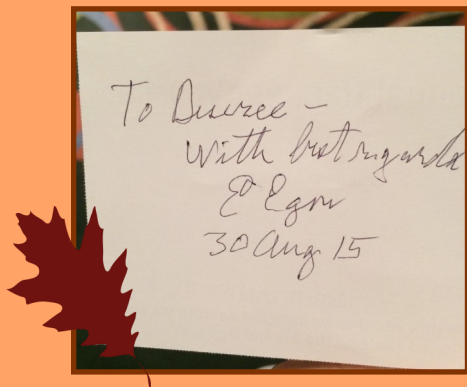 To Desiree -
With best regards
E Egon
30 Aug 15